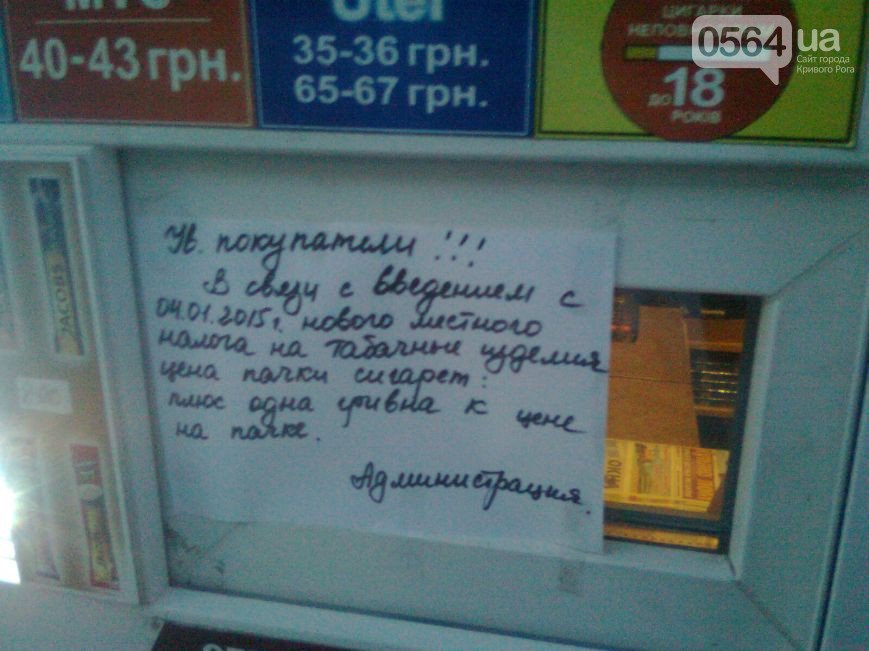 МТС
40-43 грн.
Utel
35-36 грн.
65-67 грн.
ЦИГАРКИ
ДО 18
РОКІВ
0564.ua
Сайт города
Кривого Рога
JACOBS
Ув. покупатели !!!
В связи с введением с
04.01.2015г. нового местного
налога на табачные изделия
цена пачки сигарет:
плюс одна гривна к цене
на пачке.
Администрация.